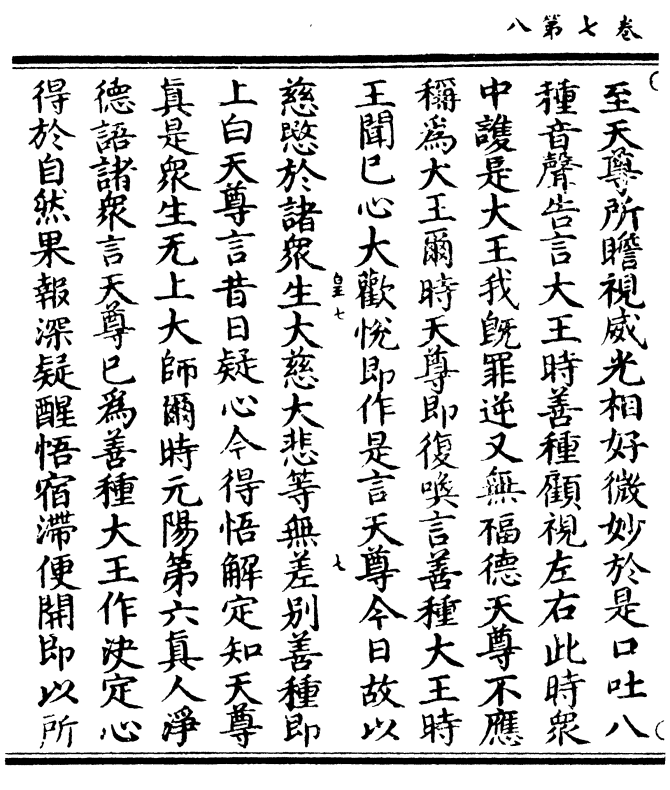 卷七第八
至天尊所瞻視威光相好微妙於是口吐八
種音聲告言大王時善種顧視左右此時衆
中誰是大王我旣罪逆又無福德天尊不應
稱爲大王爾時天尊即復喚言善種大王時
王聞已心大歡悅即作是言天尊今日故以
皇七
七
慈愍於諸衆生大慈大悲等無差別善種即
上白天尊言昔日疑心今得悟解定知天尊
眞是衆生无上大師爾時元陽第六真人淨
德語諸衆言天尊已爲善種大王作決定心
得於自然果報深疑醒悟宿滯便開即以所